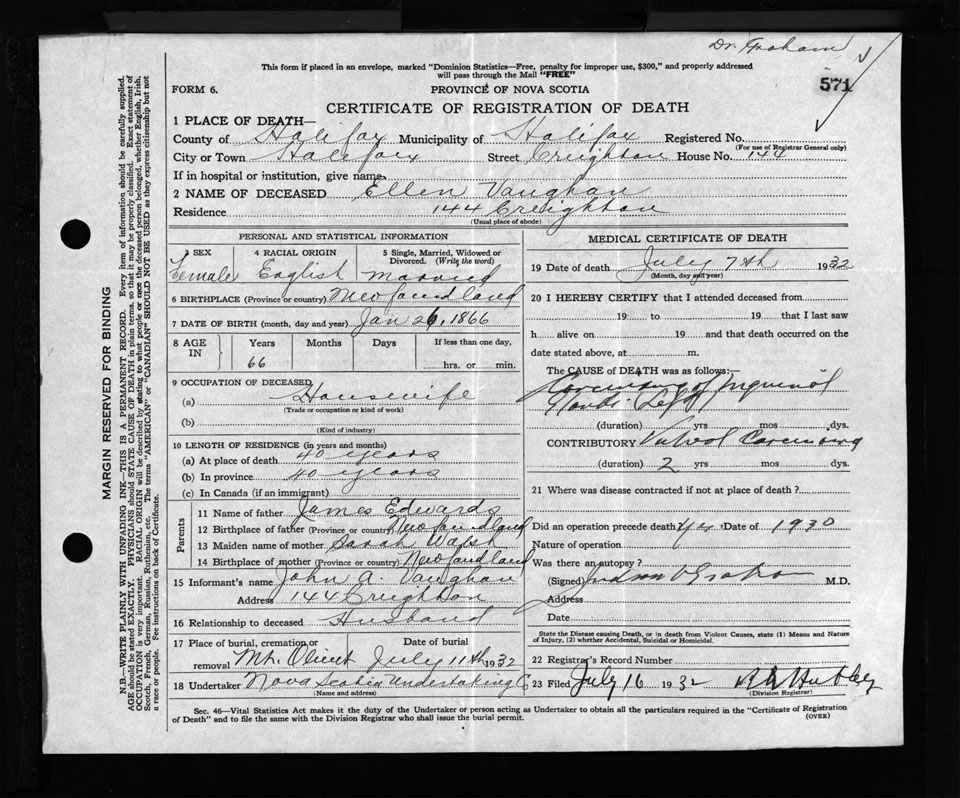 Dr. Graham
This form if placed in an envelope, marked "Dominion Statistics—Free, penalty for improper use, $300," and properly addressed
will pass through the Mail "FREE"
571
FORM 6. PROVINCE OF NOVA SCOTIA
CERTIFICATE OF REGISTRATION OF DEATH
1 PLACE OF DEATH—
County of Halifax Municipality of Halifax Registered No.
(For use of Registrar General only)
City or Town Halifax Street Creighton House No. 144
If in hospital or institution, give name
2 NAME OF DECEASED Ellen Vaughan
Residence 144 Creighton
(Usual place of abode)
PERSONAL AND STATISTICAL INFORMATION
3 SEX 4 RACIAL ORIGIN 5 Single, Married, Widowed or
Divorced. (Write the word)
Female English Married
6 BIRTHPLACE (Province or country) Newfoundland
7 DATE OF BIRTH (month, day and year) Jan 26, 1866
8 AGE IN Years Months Days If less than one day,
66 hrs. or min.
9 OCCUPATION OF DECEASED
(a) Housewife
(Trade or occupation or kind of work)
(b)
(Kind of industry)
10 LENGTH OF RESIDENCE (in years and months)
(a) At place of death 40 years
(b) In province 40 years
(c) In Canada (if an immigrant)
Parents
11 Name of father James Edwards
12 Birthplace of father (Province or country) Newfoundland
13 Maiden name of mother Sarah Walsh
14 Birthplace of mother (Province or country) Newfoundland
15 Informant's name John A. Vaughan
Address 144 Creighton
16 Relationship to deceased Husband
17 Place of burial, cremation or Date of burial
removal Mt. Olivet July 11th 1932
18 Undertaker Nova Scotia Undertaking Co
(Name and address)
MEDICAL CERTIFICATE OF DEATH
19 Date of death July 7th 1932
(Month, day and year)
20 I HEREBY CERTIFY that I attended deceased from
19 to 19 that I last saw
h alive on 19 and that death occurred on the
date stated above, at m.
The CAUSE of DEATH was as follows:—
Carcinoma of Inguinal
(Left)
(duration) yrs mos dys.
CONTRIBUTORY Carcinoma
(duration) 2 yrs mos dys.
21 Where was disease contracted if not at place of death?
Did an operation precede death? Date of 1930
Nature of operation
Was there an autopsy?
(Signed) M.D.
Address
Date
State the Disease causing Death, or in death from Violent Causes, state (1) Means and Nature
of Injury, (2) whether Accidental, Suicidal or Homicidal.
22 Registrar's Record Number
23 Filed July 16 1932
(Division Registrar)
Sec. 46—Vital Statistics Act makes it the duty of the Undertaker or person acting as Undertaker to obtain all the particulars required in the "Certificate of Registration
of Death" and to file the same with the Division Registrar who shall issue the burial permit. (OVER)
MARGIN RESERVED FOR BINDING
N.B.—WRITE PLAINLY WITH UNFADING INK—THIS IS A PERMANENT RECORD. Every item of information should be carefully supplied.
AGE should be stated EXACTLY. PHYSICIANS should STATE CAUSE OF DEATH in plain terms, so that it may be properly classified. Exact statement of
OCCUPATION is very important. RACIAL ORIGIN will be described by stating to what people or race the deceased person belonged, whether English, Irish,
Scotch, French, German, Russian, Ruthenian, etc. The terms "AMERICAN" or "CANADIAN" SHOULD NOT BE USED as they express citizenship but not
a race or people. See instructions on back of Certificate.